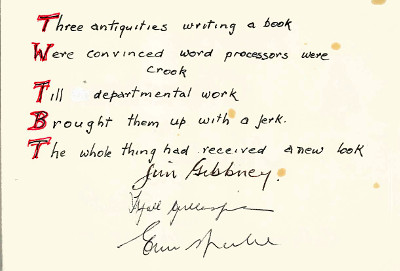 Three antiquities writing a book
Were convinced word processors were
crook
Till departmental work
Brought them up with a jerk.
The whole thing had received a new look
Jim Gibbney.
Gillespie